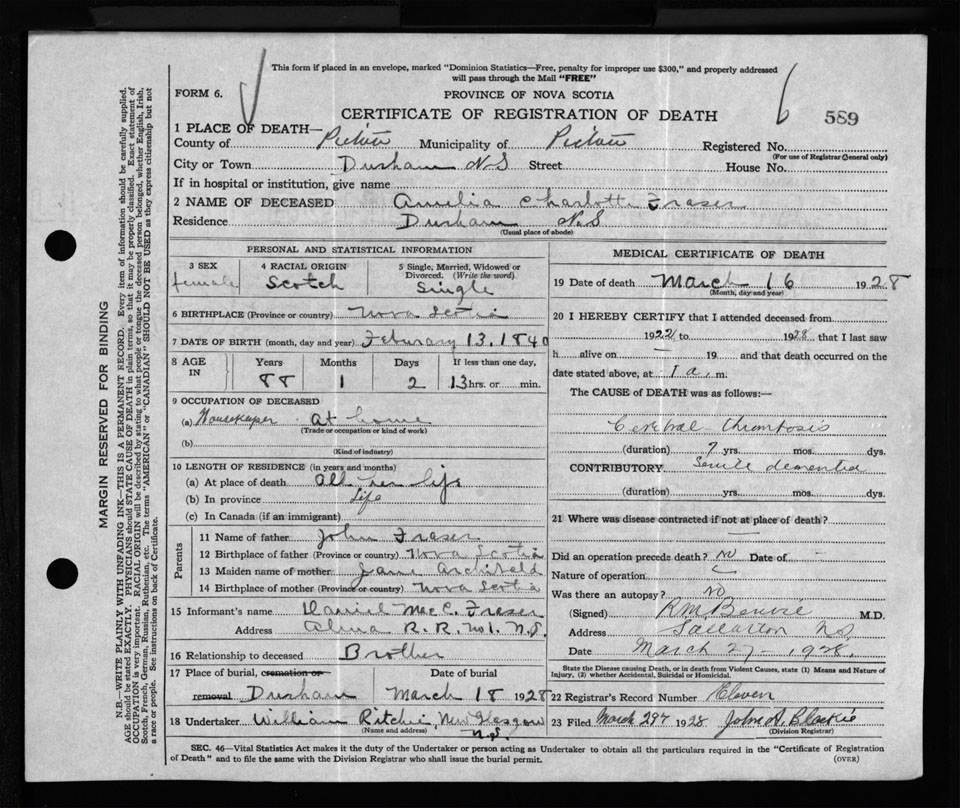 This form if placed in an envelope, marked "Dominion Statistics—Free, penalty for improper use $300," and properly addressed
will pass through the Mail "FREE"
FORM 6.
PROVINCE OF NOVA SCOTIA
CERTIFICATE OF REGISTRATION OF DEATH
6
589
1 PLACE OF DEATH—
County of Pictou Municipality of Pictou Registered No.
(For use of Registrar General only)
City or Town Durham N.S Street House No.
If in hospital or institution, give name
2 NAME OF DECEASED Amelia Charlotte Fraser
Residence Durham N.S
(Usual place of abode)
PERSONAL AND STATISTICAL INFORMATION
3 SEX 4 RACIAL ORIGIN 5 Single, Married, Widowed or
Divorced. (Write the word)
female Scotch Single
6 BIRTHPLACE (Province or country) Nova Scotia
7 DATE OF BIRTH (month, day and year) Feburary 13, 1840
8 AGE IN Years Months Days If less than one day,
88 1 2 13 hrs. or min.
9 OCCUPATION OF DECEASED
(a) Housekeeper At home
(Trade or occupation or kind of work)
(b)
(Kind of industry)
10 LENGTH OF RESIDENCE (in years and months)
(a) At place of death All her life
(b) In province Life
(c) In Canada (if an immigrant)
Parents
11 Name of father John Fraser
12 Birthplace of father (Province or country) Nova Scotia
13 Maiden name of mother Jane Archibald
14 Birthplace of mother (Province or country) Nova Scotia
15 Informant's name Daniel MacC. Fraser
Address Alma R.R. No 1. N.S.
16 Relationship to deceased Brother
17 Place of burial, cremation or Date of burial
removal Durham March 18 1928
18 Undertaker William Ritchie, New Glasgow
(Name and address) N.S.
MEDICAL CERTIFICATE OF DEATH
19 Date of death March 16 1928
(Month, day and year)
20 I HEREBY CERTIFY that I attended deceased from
1922 to 1928, that I last saw
h alive on 19 and that death occurred on the
date stated above, at 1 a. m.
The CAUSE of DEATH was as follows:—
Cerebral thrombosis
(duration) 7 yrs. mos. dys.
CONTRIBUTORY Senile dementia
(duration) yrs. mos. dys.
21 Where was disease contracted if not at place of death?
Did an operation precede death? No Date of —
Nature of operation
Was there an autopsy? No
(Signed) R.M. Benvie M.D.
Address Stellarton NS
Date March 27 – 1928.
State the Disease causing Death, or in death from Violent Causes, state (1) Means and Nature of
Injury, (2) whether Accidental, Suicidal or Homicidal.
22 Registrar's Record Number Eleven
23 Filed March 29th 1928 John A. Blackie
(Division Registrar)
SEC. 46—Vital Statistics Act makes it the duty of the Undertaker or person acting as Undertaker to obtain all the particulars required in the "Certificate of Registration
of Death" and to file the same with the Division Registrar who shall issue the burial permit.
(OVER)
MARGIN RESERVED FOR BINDING
N.B.—WRITE PLAINLY WITH UNFADING INK—THIS IS A PERMANENT RECORD. Every item of information should be carefully supplied.
AGE should be stated EXACTLY. PHYSICIANS should STATE CAUSE OF DEATH in plain terms, so that it may be properly classified. Exact statement of
OCCUPATION is very important. RACIAL ORIGIN will be described by stating to what people or tongue the deceased person belonged, whether English, Irish,
Scotch, French, German, Russian, Ruthenian, etc. The terms "AMERICAN" or "CANADIAN" SHOULD NOT BE USED as they express citizenship but not
a race or people. See instructions on back of Certificate.